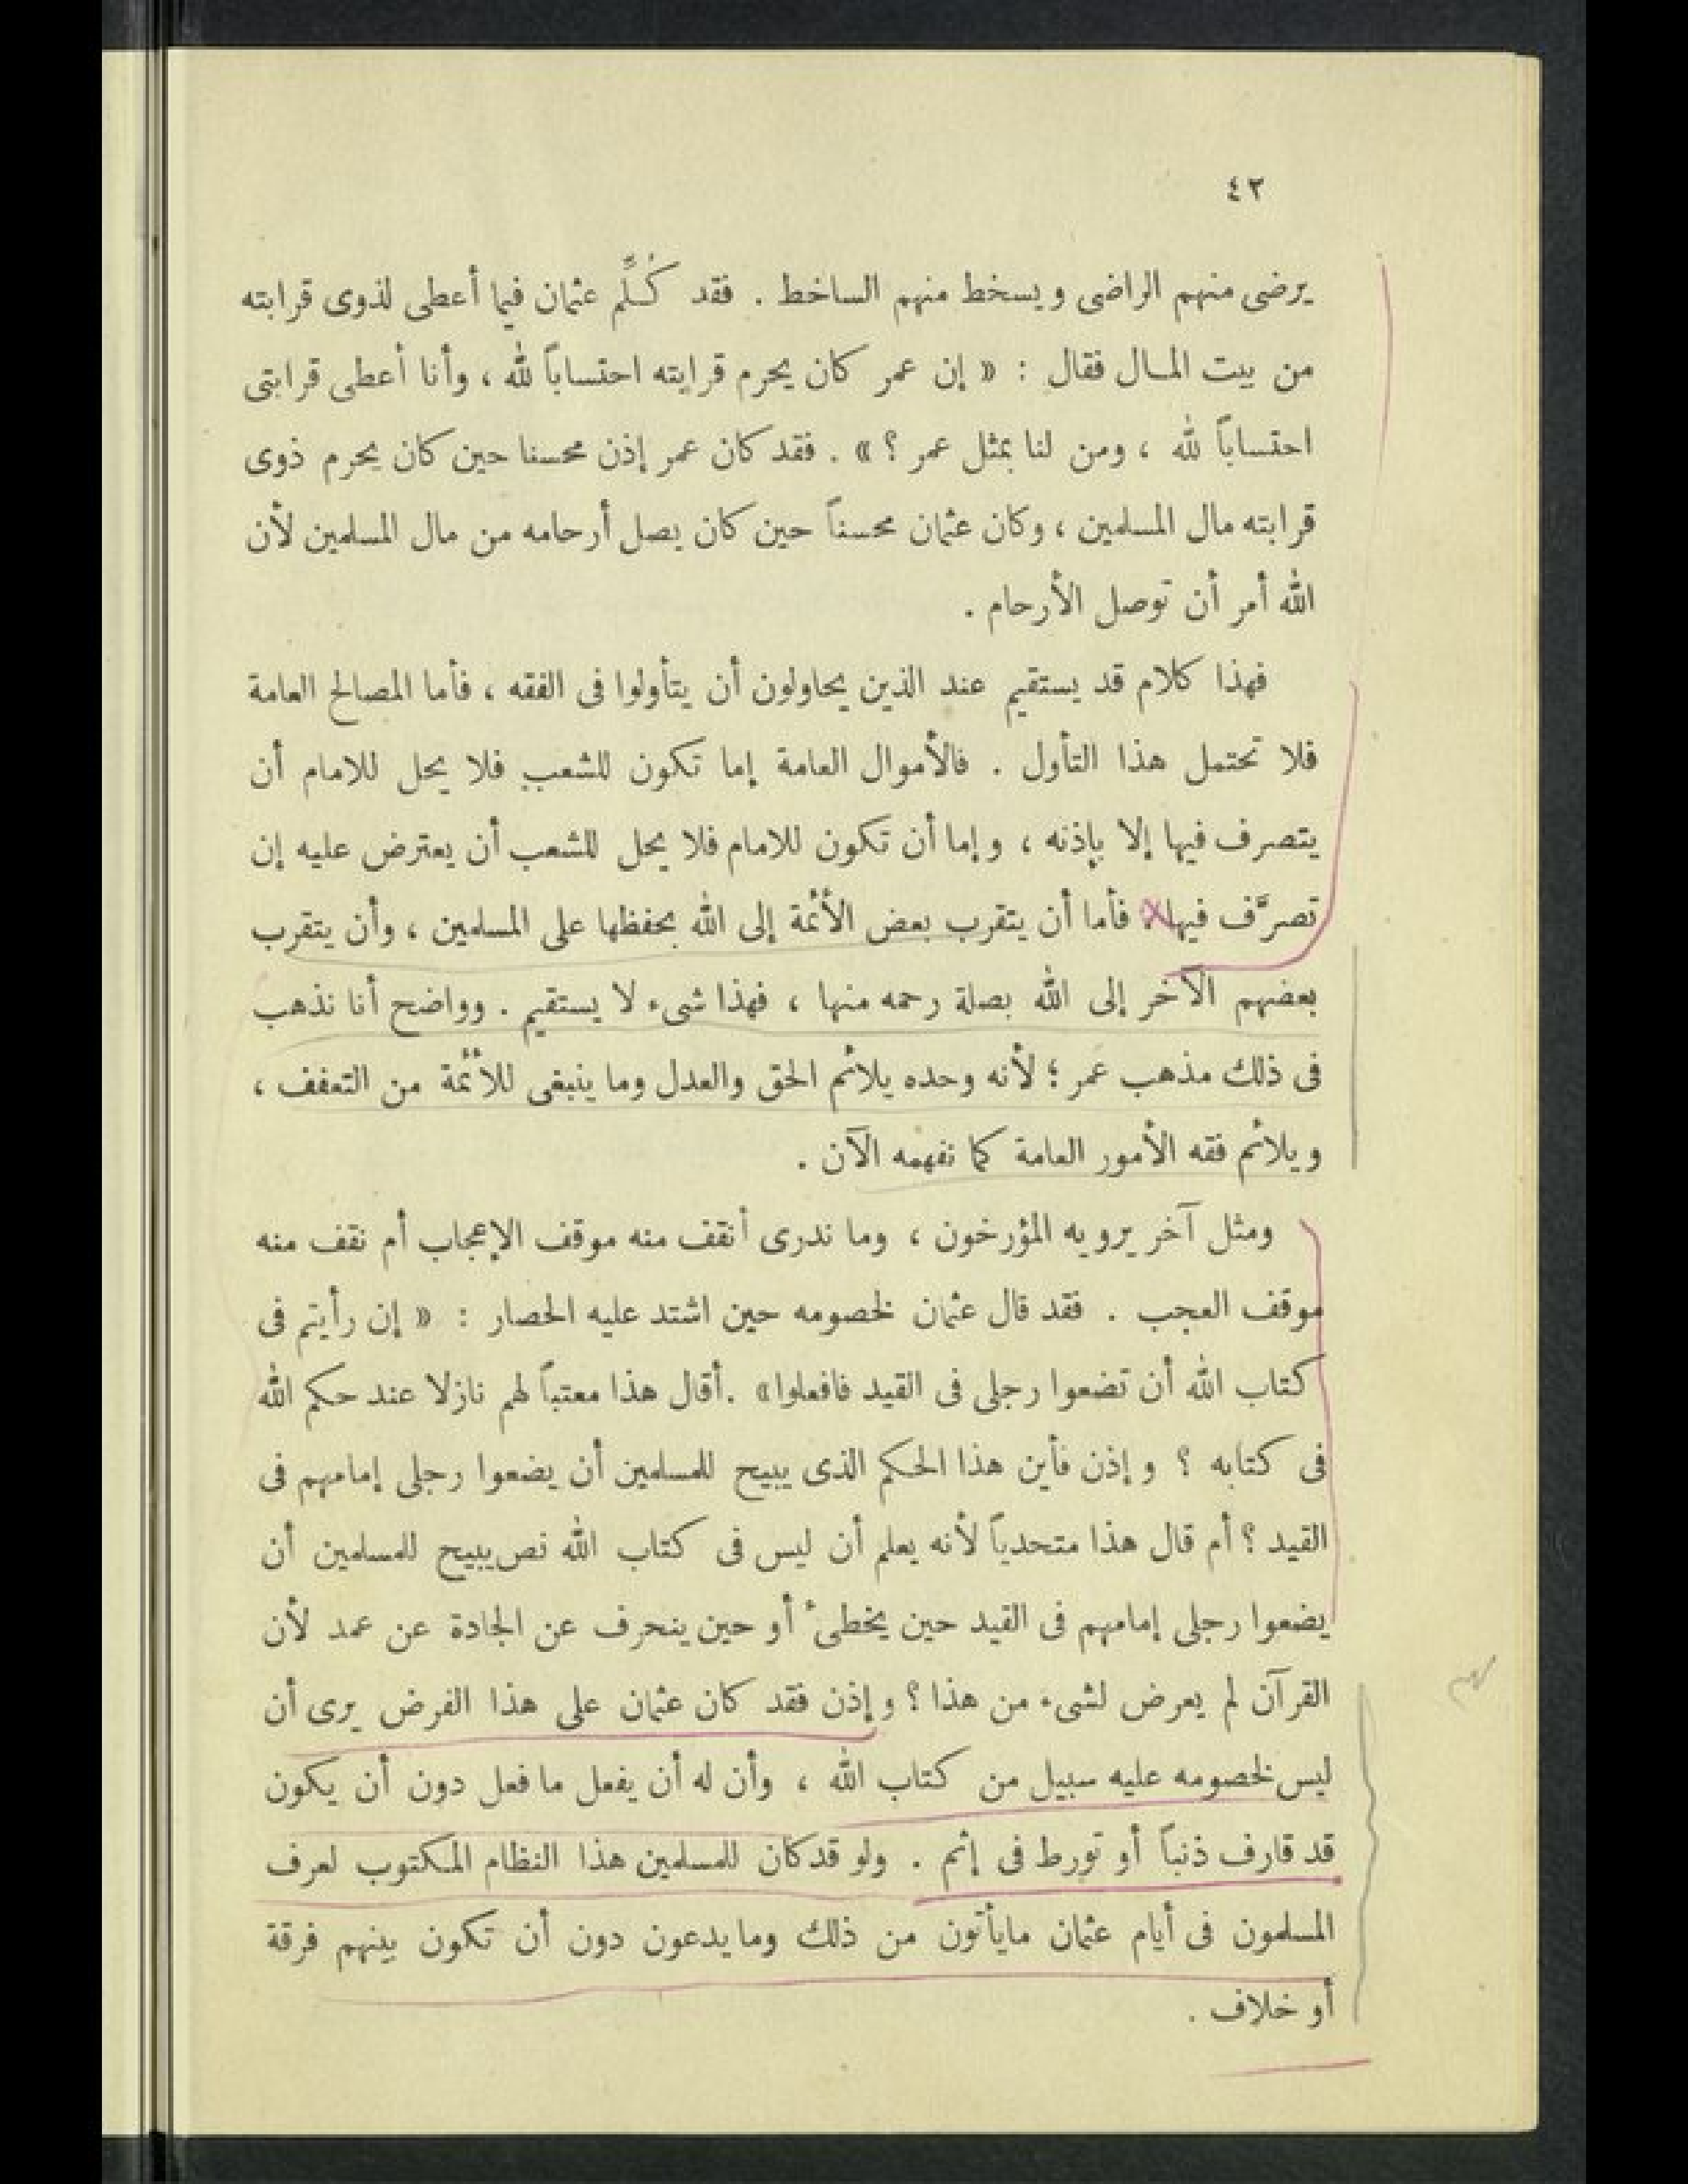 ٤٢
يرضى منهم الراضى ويسخط منهم الساخط . فقد كُلِّم عثمان فيما أعطى لذوى قرابته
من بيت المال فقال : « إن عمر كان يحرم قرابته احتساباً لله ، وأنا أعطى قرابتى
احتساباً لله ، ومن لنا بمثل عمر ؟ » . فقد كان عمر إذن محسنا حين كان يحرم ذوى
قرابته مال المسلمين ، وكان عثمان محسناً حين كان يصل أرحامه من مال المسلمين لأن
الله أمر أن توصل الأرحام .
فهذا كلام قد يستقيم عند الذين يحاولون أن يتأولوا فى الفقه ، فأما المصالح العامة
فلا تحتمل هذا التأول . فالأموال العامة إما تكون للشعب فلا يحل للامام أن
يتصرف فيها إلا بإذنه ، وإما أن تكون للامام فلا يحل للشعب أن يعترض عليه إن
تصرَّف فيها . فأما أن يتقرب بعض الأئمة إلى الله بحفظها على المسلمين ، وأن يتقرب
بعضهم الآخر إلى الله بصلة رحمه منها ، فهذا شىء لا يستقيم . وواضح أنا نذهب
فى ذلك مذهب عمر ؛ لأنه وحده يلائم الحق والعدل وما ينبغى للأئمة من التعفف ،
ويلائم فقه الأمور العامة كما نفهمه الآن .
ومثل آخر يرويه المؤرخون ، وما ندرى أنقف منه موقف الإعجاب أم نقف منه
موقف العجب . فقد قال عثمان لخصومه حين اشتد عليه الحصار : « إن رأيتم فى
كتاب الله أن تضعوا رجلى فى القيد فافعلوا» .أقال هذا معتباً لهم نازلا عند حكم الله
فى كتابه ؟ وإذن فأين هذا الحكم الذى يبيح للمسلمين أن يضعوا رجلى إمامهم فى
القيد ؟ أم قال هذا متحدياً لأنه يعلم أن ليس فى كتاب الله نص يبيح للمسلمين أن
يضعوا رجلى إمامهم فى القيد حين يخطىء أو حين ينحرف عن الجادة عن عمد لأن
القرآن لم يعرض لشىء من هذا ؟ وإذن فقد كان عثمان على هذا الفرض يرى أن
ليس لخصومه عليه سبيل من كتاب الله ، وأن له أن يفعل ما فعل دون أن يكون
قد قارف ذنباً أو تورط فى إثم . ولو قد كان للمسلمين هذا النظام المكتوب لعرف
المسلمون فى أيام عثمان مايأتون من ذلك وما يدعون دون أن تكون بينهم فرقة
أو خلاف .